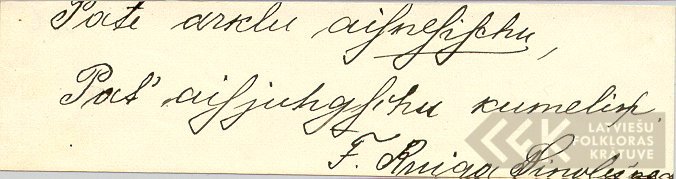 Pate arklu aisnesischu,
Pat' aisjuhgschu kumeliņ.
F. Kniga
LATVIEŠU
FOLKLORAS
KRĀTUVE